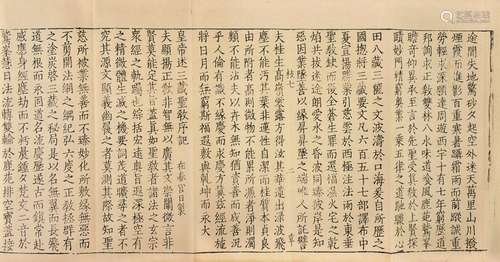 途閒失地驚砂夕起空外迷天萬里山川撥
煙霞而進影百重寒暑躡霜雨而前蹤誠重
勞輕求深願達周遊西宇十有七年窮歷道
邦詢求正教雙林八水味道飡風鹿菀鷲峯
瞻奇仰異承至言於先聖受真教於上賢探
賾妙門精窮奧業一乘五律之道馳驟於心
田八藏三篋之文波濤於口海爰自所歷之
國揔將三藏要文凡六百五十七部譯布中
夏宣揚勝業引慈雲於西極注法雨於東垂
聖教缺而復全蒼生罪而還福濕火宅之乾
焰共拔迷途朗愛水之昏波同臻彼岸是知
惡因業墜善以緣昇昇墜之端唯人所託譬
夫桂生高嶺雲露方得泫其華蓮出淥波飛
塵不能汙其葉非蓮性自潔而桂質本貞良
由所附者高則微物不能累所憑者淨則濁
類不能沾夫以卉木無知猶資善而成善況
乎人倫有識不緣慶而求慶方冀茲經流施
將日月而無窮斯福遐敷與乾坤而永大
皇帝述三藏聖教序記 在春宮日製
夫顯揚正教非智無以廣其文崇闡微言非
賢莫能定其旨蓋真如聖教者諸法之玄宗
衆經之軌躅也綜括宏遠奧旨遐深極空有
之精微體生滅之機要詞茂道曠尋之者不
究其源文顯義幽履之者莫測其際故知聖
慈所被業無善而不臻妙化所敷緣無惡而
不剪開法網之綱紀弘六度之正教拯群有
之塗炭啓三藏之祕扃是以名無翼而長飛
道無根而永固道名流慶歷遂古而鎮常赴
感應身經塵劫而不朽晨鍾夕梵交二音於
鷲峯慧日法流轉雙輪於鹿菀排空寶蓋接